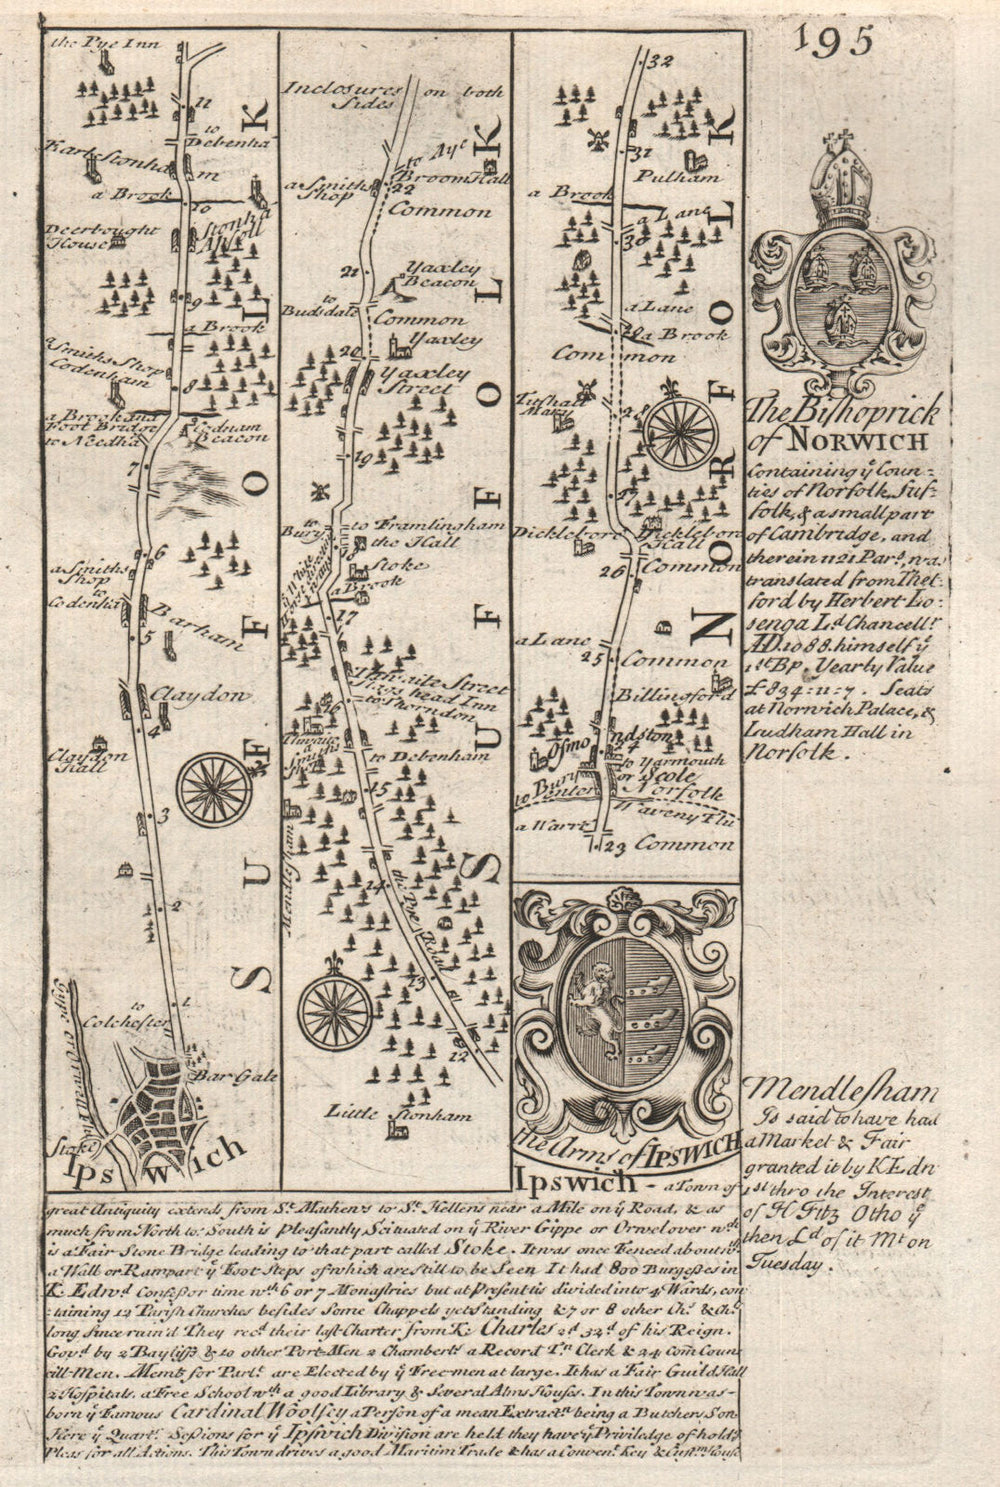 195
the Pye Inn
11
to
Debenhā
Earle Stonhā
m
a Brook
10
Stonhā
Aspoll
Deerbought
House
9
a Brook
a Smiths Shop
Codenham
8
a Brook and
Foot Bridge
to Needhā
Codnam
Beacon
7
6
a Smiths
Shop
to
Codenhā
Barham
5
Claydon
4
Claydon
Hall
3
2
1
to
Colchester
Bar Gate
Gype or Orwell Flu
Stoke
Ipswich
SUFFOLK
Inclosures on both
Sides
to Aye
Broom Hall
a Smiths
Shop
22
Common
21
Yaxley
Beacon
to
Budsdale
Common
Yaxley
20
Yaxley
Street
19
to
Bury
to Framlingham
the Hall
Stoke
a Brook
17
Thwaite Street
Bucks head Inn
to Thorndon
16
Thwaite
a
Smiths
Shop
to Debenham
15
Mendlesham
14
the Pye Road
13
12
Little Stonham
SUFFOLK
32
31
Pulham
a Brook
a Lane
30
a Lane
29
a Brook
Common
Tushall
Mary
28
27
Dickleboro
Dickleboro
Hall
26
Common
a Lane
25
Common
Billingford
Osmondston
24
to Yarmouth
or Scole
to Bury
enter
Norfolk
Waveny Flu
a Warrē
23 Common
NORFOLK
the Arms of IPSWICH
The Bishoprick
of NORWICH
Containing yᵉ Coun=
ties of Norfolk, Suf-
folk, & a small part
of Cambridge, and
therein 1121 Parˢ. was
translated from Thet-
ford by Herbert Lo-
senga Lᵈ Chancellʳ
AD. 1088. himself yᵉ
1ˢᵗ Bᵖ. Yearly Value
£ 834=11=7. Seats
at Norwich Palace, &
Ludham Hall in
Norfolk.
Mendlesham
Is said to have had
a Market & Fair
granted it by K Edw
1ˢᵗ thro the Interest
of H Fitz Otho yᵉ
then Lᵈ of it Mᵗ on
Tuesday.
Ipswich - a Town of
great Antiquity extends from Sᵗ Mathews to Sᵗ Hellens near a Mile on yᵉ Road, & as
much from North to South is Pleasantly Scituated on yᵉ River Gippe or Orwel over wᶜʰ
is a Fair Stone Bridge leading to that part called Stoke. It was once Fenced about wᵗʰ
a Wall or Rampart yᵉ Foot Steps of which are still to be Seen It had 800 Burgesses in
K. Edwᵈ Confessor time wᵗʰ 6 or 7 Monastries but at Present is divided into 4 Wards, con
taining 12 Parish Churches besides Some Chappels yet Standing & 7 or 8 other Chˢ & Chaˢ
long since ruin'd They recᵈ their last Charter from K. Charles 2ᵈ 32ᵈ of his Reign.
Govᵈ by 2 Bayliffs & 10 other Port-Men 2 Chamberlˢ a Record Tⁿ Clerk & 24 Com Coun
cill-Men. Membˢ for Parlᵗ are Elected by yᵉ Freemen at large. It has a Fair Guild Hall
2 Hospitals, a Free School wᵗʰ a good Library & Several Alms Houses. In this Town was-
born yᵉ Famous Cardinal Woolsey a Person of a mean Extractⁿ being a Butchers Son
Here yᵉ Quartʳ Sessions for yᵉ Ipswich Division are held they have yᵉ Priviledge of holdᵍ
Pleas for all Actions. This Town drives a good Maritim Trade & has a Convenᵗ Key & Custᵐ House